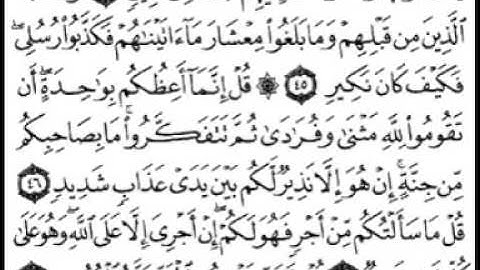 ٱلَّذِينَ مِن قَبۡلِهِمۡ وَمَا بَلَغُواْ مِعۡشَارَ مَآ ءَاتَيۡنَٰهُمۡ فَكَذَّبُواْ رُسُلِيۖ
فَكَيۡفَ كَانَ نَكِيرِ ٤٥ ۞ قُلۡ إِنَّمَآ أَعِظُكُم بِوَٰحِدَةٍۖ أَن
تَقُومُواْ لِلَّهِ مَثۡنَىٰ وَفُرَٰدَىٰ ثُمَّ تَتَفَكَّرُواْۚ مَا بِصَاحِبِكُم
مِّن جِنَّةٍۚ إِنۡ هُوَ إِلَّا نَذِيرٞ لَّكُم بَيۡنَ يَدَيۡ عَذَابٖ شَدِيدٖ ٤٦
قُلۡ مَا سَأَلۡتُكُم مِّنۡ أَجۡرٖ فَهُوَ لَكُمۡۖ إِنۡ أَجۡرِيَ إِلَّا عَلَى ٱللَّهِۖ وَهُوَ عَلَىٰ